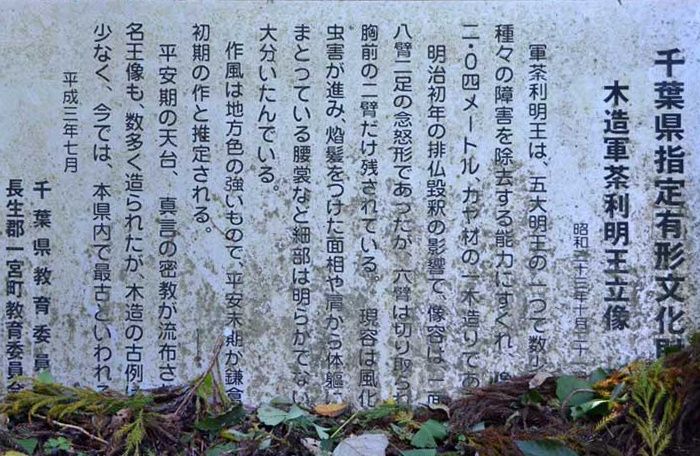 千葉県指定有形文化財
木造軍茶利明王立像
昭和二十三年十月二十
軍茶利明王は、五大明王の一つで数少
種々の障害を除去する能力にすぐれ、
二・〇四メートル、カヤ材の一木造りであ
明治初年の排仏毀釈の影響で、像容は一面
八臂二足の念怒形であったが、六臂は切り取られ
胸前の二臂だけ残されている。現容は風化
虫害が進み、焔髪をつけた面相や肩から体軀に
まとっている腰裳など細部は明らかでない
大分いたんでいる。
作風は地方色の強いもので、平安末期か鎌倉
初期の作と推定される。
平安期の天台、真言の密教が流布され
名王像も、数多く造られたが、木造の古例は
少なく、今では、本県内で最古といわれる
平成三年七月
千葉県教育委員
長生郡一宮町教育委員会